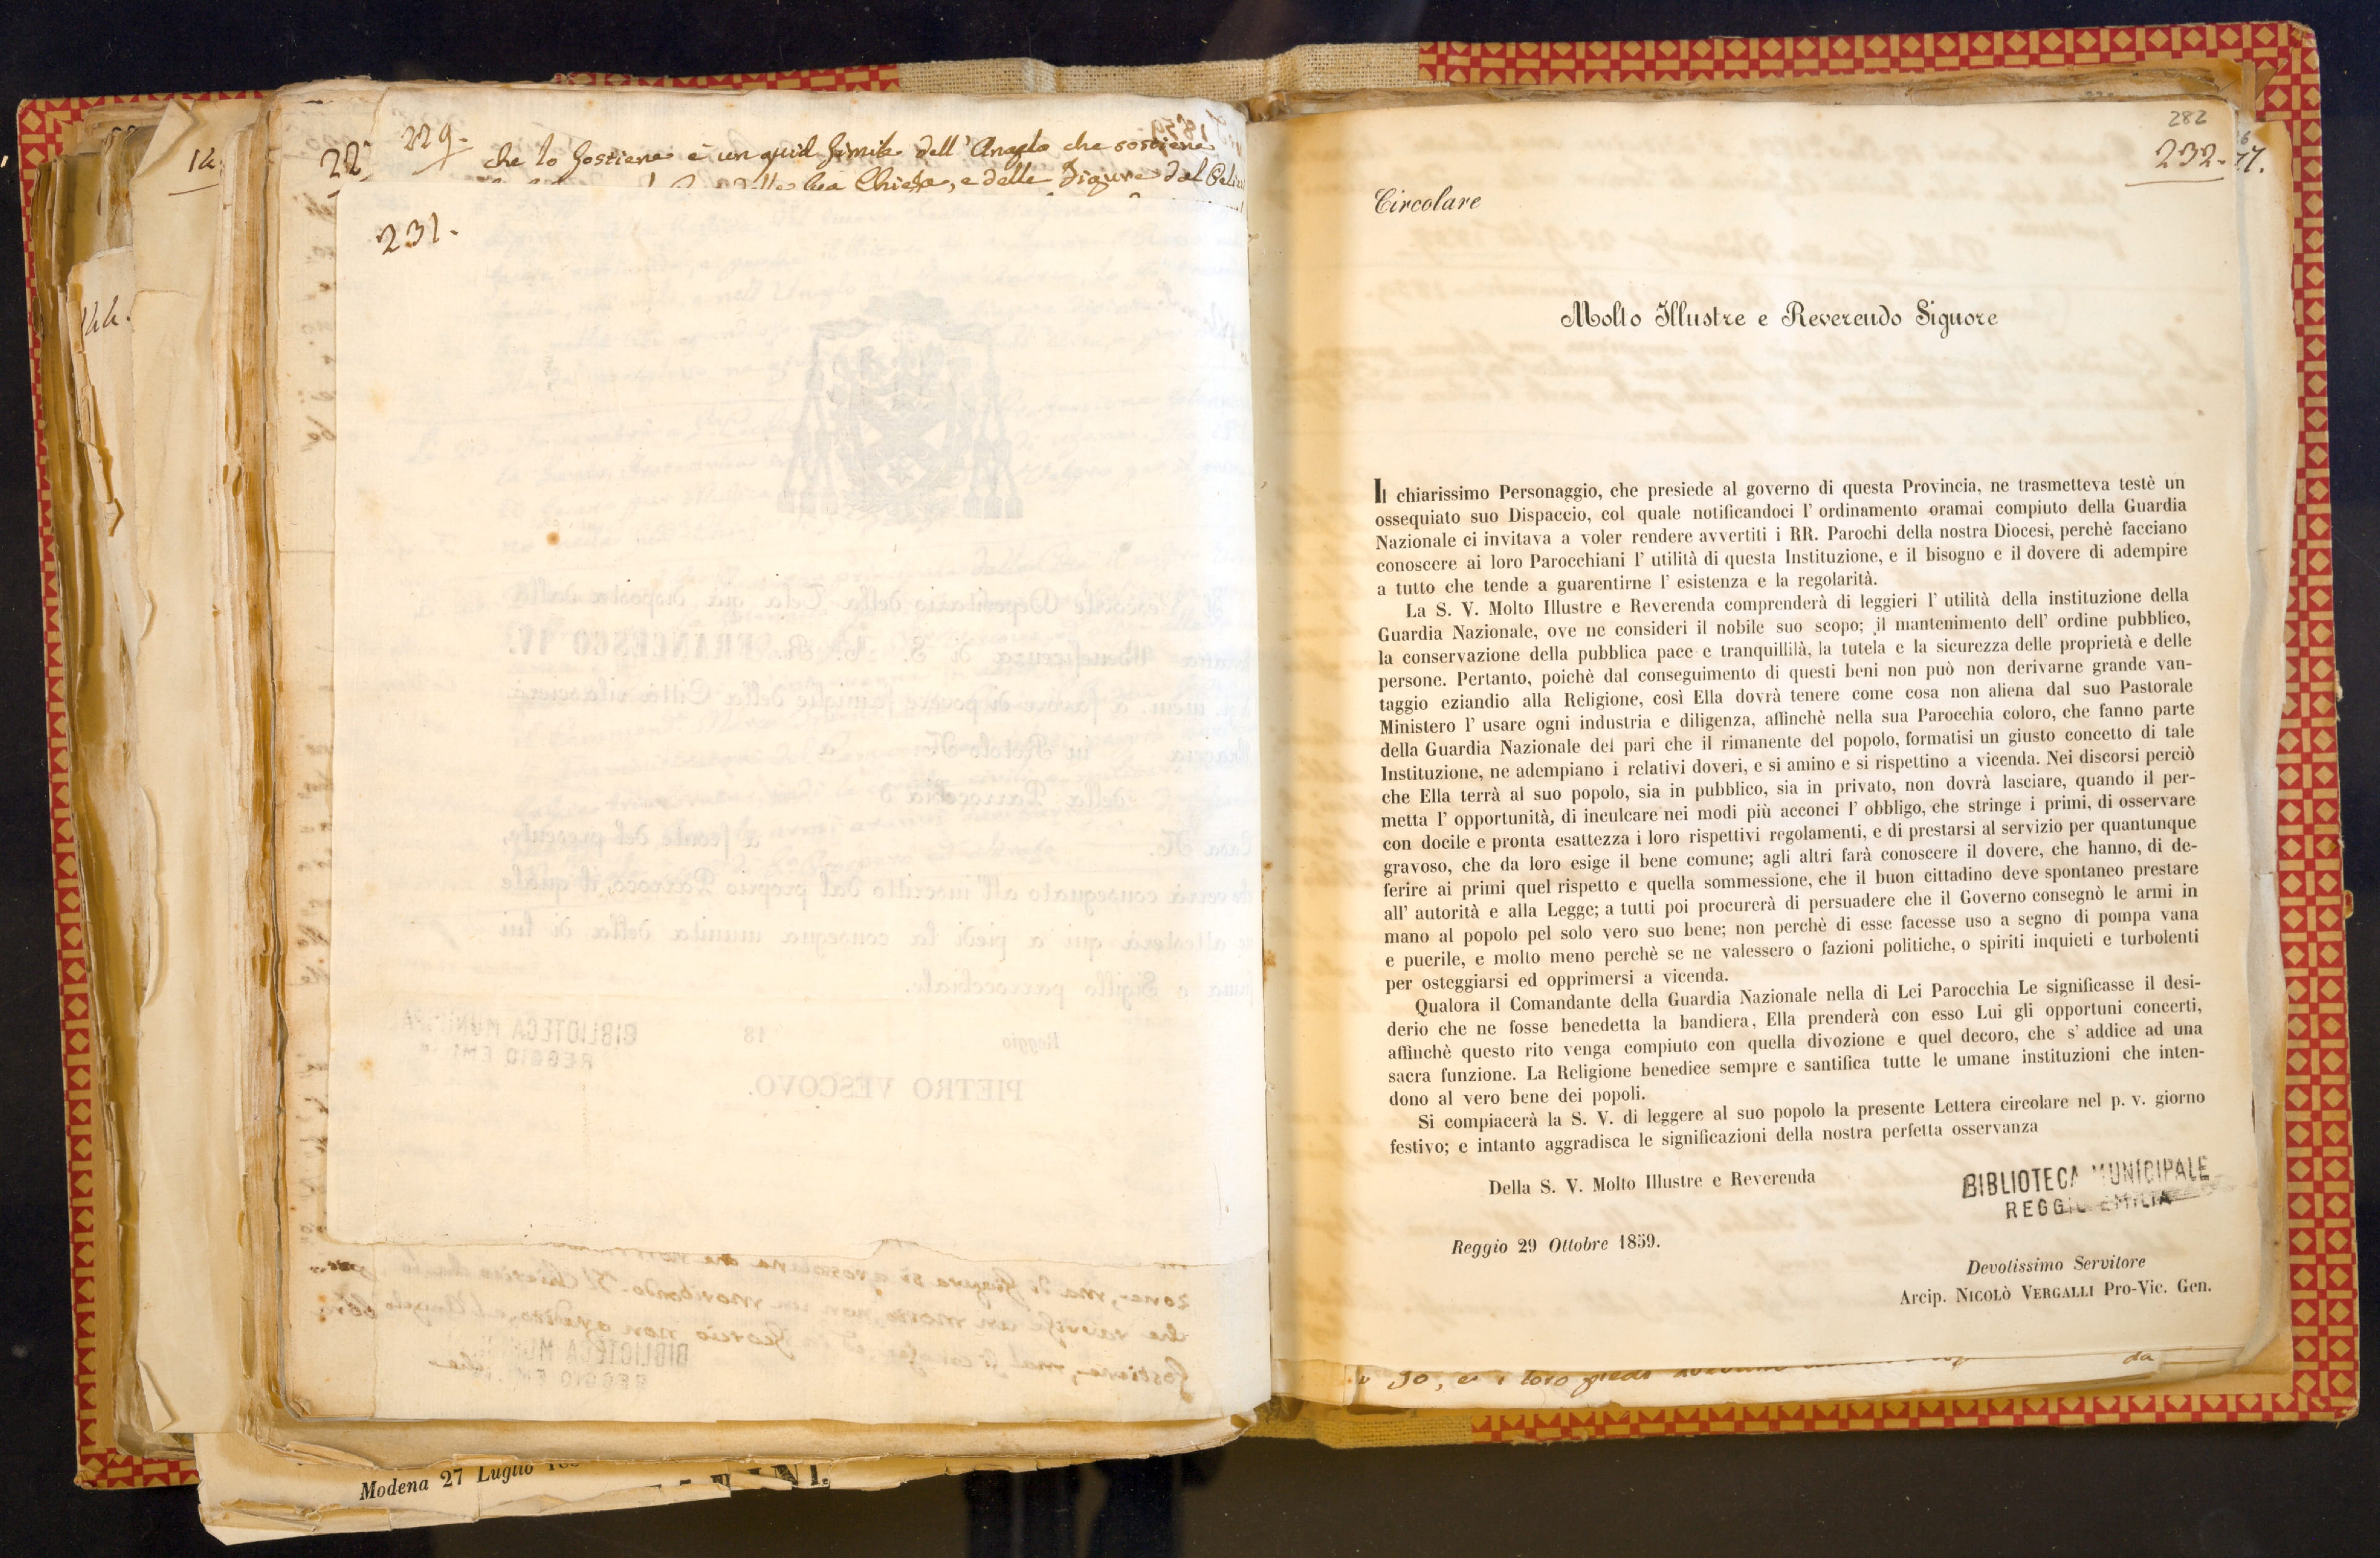 14.
144.
22
229.
che lo sostiene è un quid simile dell' Angelo che sostiene
Chiesa, e delle Figure dal
231.
Modena 27 Luglio
282
232.
77.
Circolare
Molto Illustre e Reverendo Signore
Il chiarissimo Personaggio, che presiede al governo di questa Provincia, ne trasmetteva testè un
ossequiato suo Dispaccio, col quale notificandoci l' ordinamento oramai compiuto della Guardia
Nazionale ci invitava a voler rendere avvertiti i RR. Parochi della nostra Diocesi, perchè facciano
conoscere ai loro Parocchiani l' utilità di questa Instituzione, e il bisogno e il dovere di adempire
a tutto che tende a guarentirne l' esistenza e la regolarità.
La S. V. Molto Illustre e Reverenda comprenderà di leggieri l' utilità della instituzione della
Guardia Nazionale, ove ne consideri il nobile suo scopo; il mantenimento dell' ordine pubblico,
la conservazione della pubblica pace e tranquillilà, la tutela e la sicurezza delle proprietà e delle
persone. Pertanto, poichè dal conseguimento di questi beni non può non derivarne grande van-
taggio eziandio alla Religione, così Ella dovrà tenere come cosa non aliena dal suo Pastorale
Ministero l' usare ogni industria e diligenza, affinchè nella sua Parocchia coloro, che fanno parte
della Guardia Nazionale del pari che il rimanente del popolo, formatisi un giusto concetto di tale
Instituzione, ne adempiano i relativi doveri, e si amino e si rispettino a vicenda. Nei discorsi perciò
che Ella terrà al suo popolo, sia in pubblico, sia in privato, non dovrà lasciare, quando il per-
metta l' opportunità, di inculcare nei modi più acconci l' obbligo, che stringe i primi, di osservare
con docile e pronta esattezza i loro rispettivi regolamenti, e di prestarsi al servizio per quantunque
gravoso, che da loro esige il bene comune; agli altri farà conoscere il dovere, che hanno, di de-
ferire ai primi quel rispetto e quella sommessione, che il buon cittadino deve spontaneo prestare
all' autorità e alla Legge; a tutti poi procurerà di persuadere che il Governo consegnò le armi in
mano al popolo pel solo vero suo bene; non perchè di esse facesse uso a segno di pompa vana
e puerile, e molto meno perchè se ne valessero o fazioni politiche, o spiriti inquieti e turbolenti
per osteggiarsi ed opprimersi a vicenda.
Qualora il Comandante della Guardia Nazionale nella di Lei Parocchia Le significasse il desi-
derio che ne fosse benedetta la bandiera, Ella prenderà con esso Lui gli opportuni concerti,
affinchè questo rito venga compiuto con quella divozione e quel decoro, che s' addice ad una
sacra funzione. La Religione benedice sempre e santifica tutte le umane instituzioni che inten-
dono al vero bene dei popoli.
Si compiacerà la S. V. di leggere al suo popolo la presente Lettera circolare nel p. v. giorno
festivo; e intanto aggradisca le significazioni della nostra perfetta osservanza
Della S. V. Molto Illustre e Reverenda
BIBLIOTECA MUNICIPALE
REGGIO EMILIA
Reggio 29 Ottobre 1859.
Devotissimo Servitore
Arcip. NICOLÒ VERGALLI Pro-Vic. Gen.
loro piedi
da